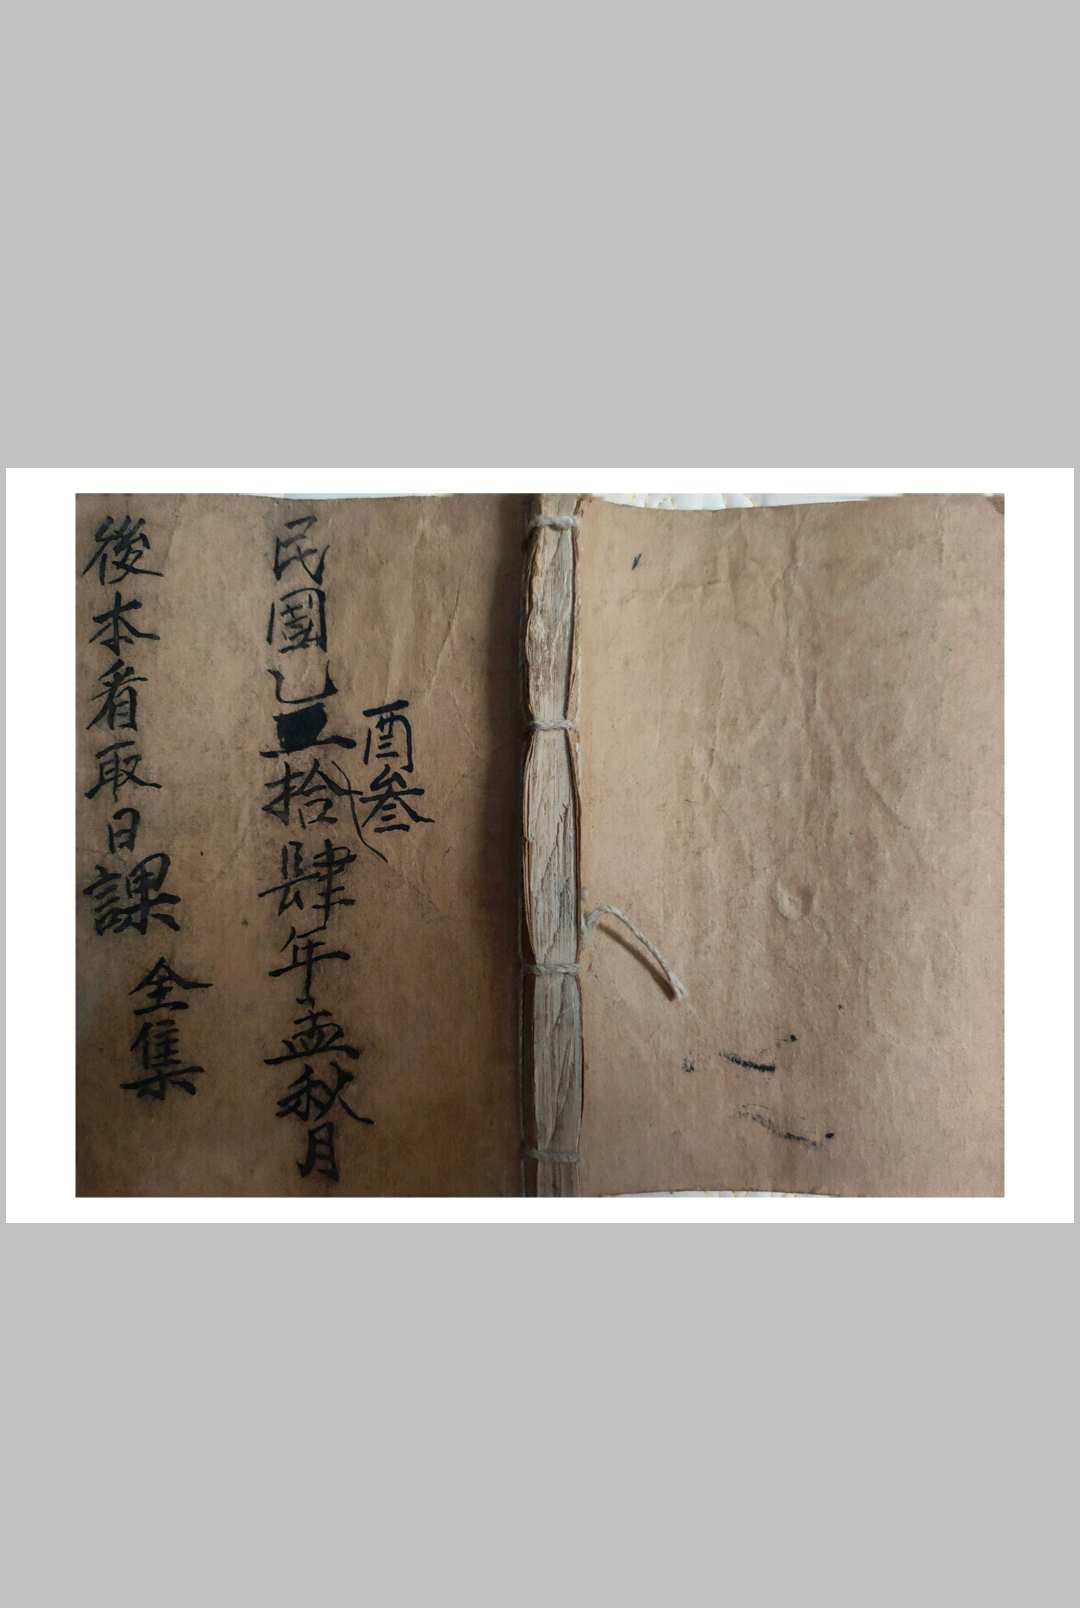 酉叁
民國乙拾肆年孟秋月
後本看取日課全集